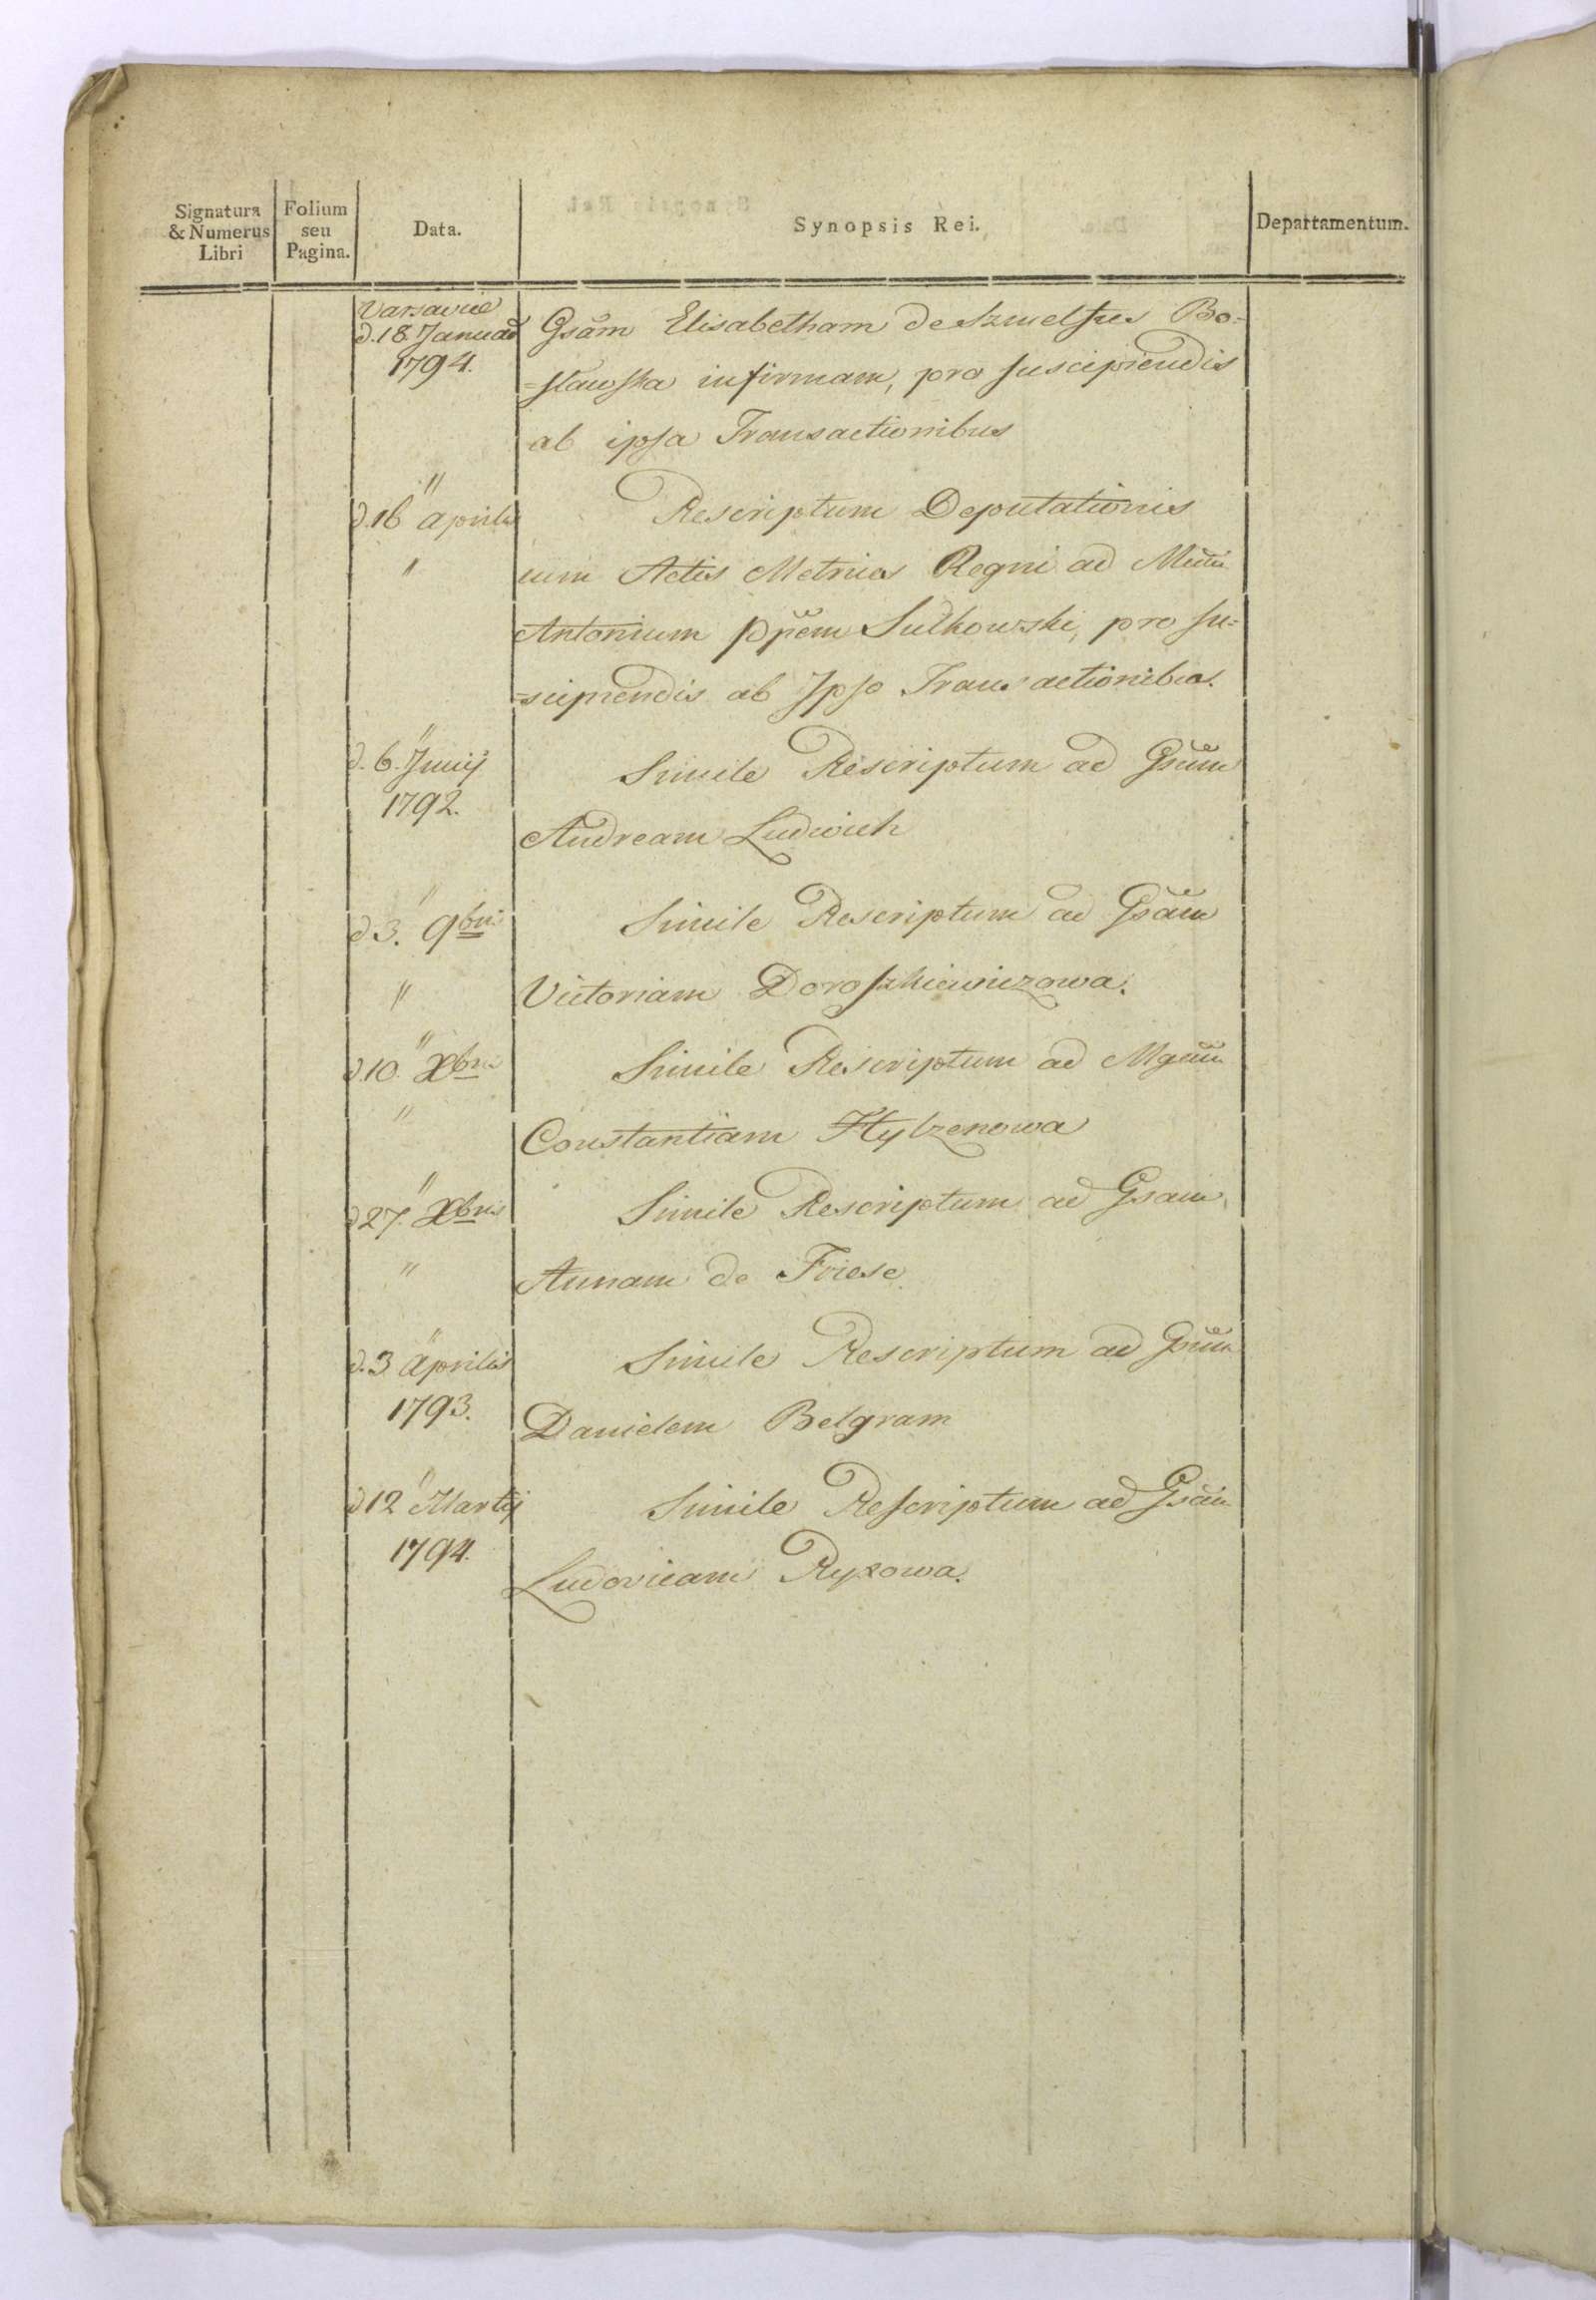 Signatura & Numerus Libri
Folium seu Pagina.
Data.
Synopsis Rei.
Departamentum.
Varsaviæ
d. 18. Januar
1794.
Gsam Elisabetham de Bo=
=sławska infirmam, pro suscipiendis
ab ipsa Transactionibus
"
d. 16 Aprilis
"
Rescriptum Deputationis
cum Actis Metrices Regni ad
Antonium Sułkowski, pro su=
=scipiendis ab Ipso Transactionibus.
"
d. 6. Junij
1792.
Simile Rescriptum ad Gsum
Andream Ludwich
"
d 3. 9bris
"
Simile Rescriptum ad Gsam
Victoriam Doroszkiewiczowa.
"
d 10. Xbris
"
Simile Rescriptum ad Mgam
Constantiam Hylzenowa
"
d 27. Xbris
"
Simile Rescriptum ad Gsam
Annam de Friese
"
d. 3 Aprilis
1793.
Simile Rescriptum ad Gsum
Danielem Belgram
"
d 12 Martij
1794.
Simile Rescriptum ad Gsam
Ludovicam Ryxowa.